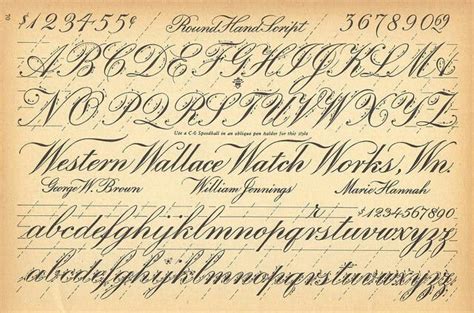 $123455¢ Round Hand Script 36789069
ABCDEFGHIJKLM
NOPQRSTUVWXYZ
Use a C-6 Speedball in an oblique pen holder for this style
Western Wallace Watch Works, Wn.
George W. Brown William Jennings Marie Hannah
r $1234567890
abcdefghijklmnopqrrstuvwxyzz
abcdefghijklmnopqrstuvwxyzz